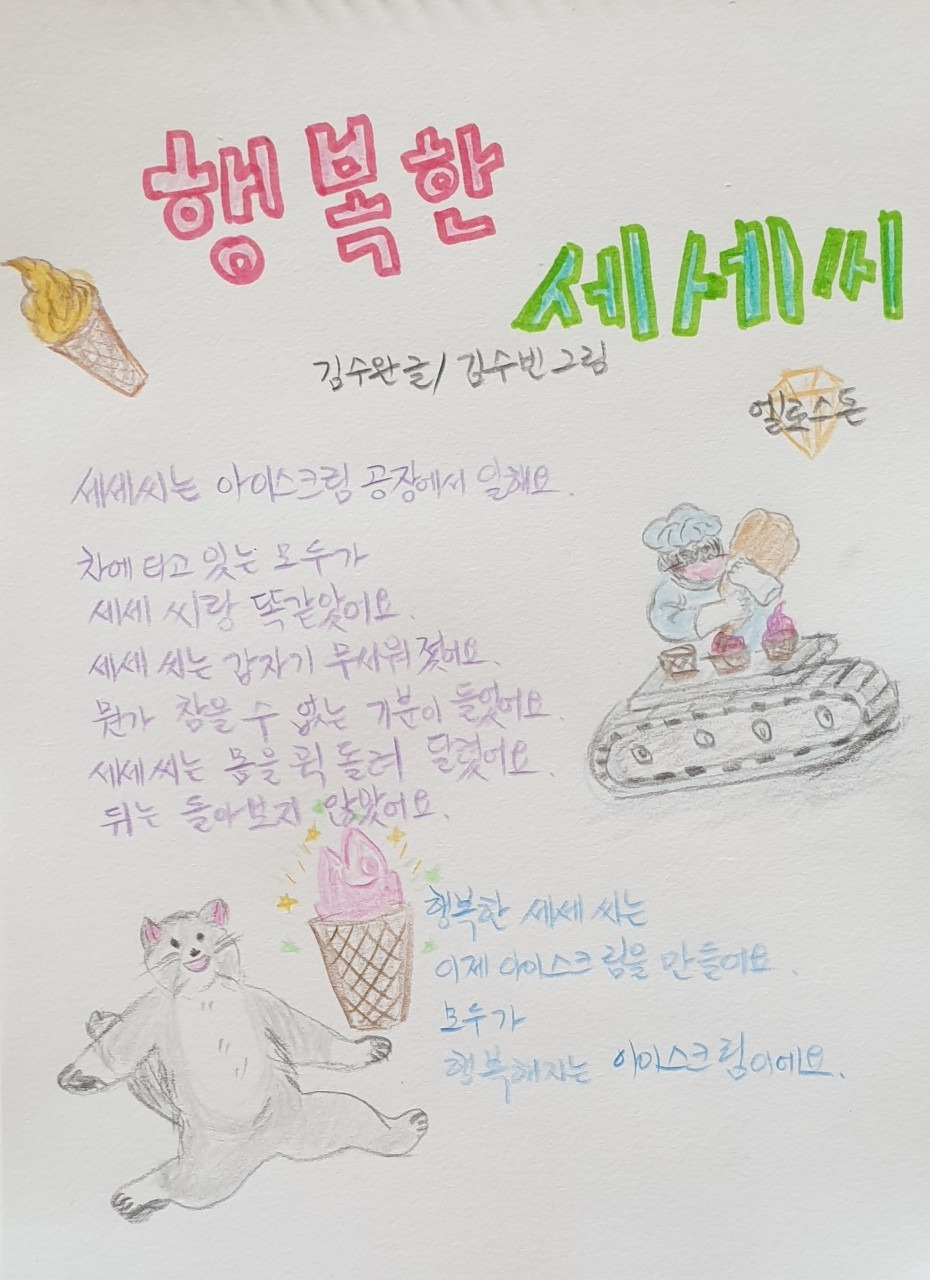 행복한
세세 씨
김수완 글 / 김수빈 그림
옐로스톤
세세 씨는 아이스크림 공장에서 일해요.
차에 타고 있는 모두가
세세 씨랑 똑같았어요.
세세 씨는 갑자기 무서워졌어요.
뭔가 참을 수 없는 기분이 들었어요.
세세 씨는 몸을 획 돌려 달렸어요.
뒤는 돌아보지 않았어요.
행복한 세세 씨는
이제 아이스크림을 만들어요.
모두가
행복해지는 아이스크림이에요.